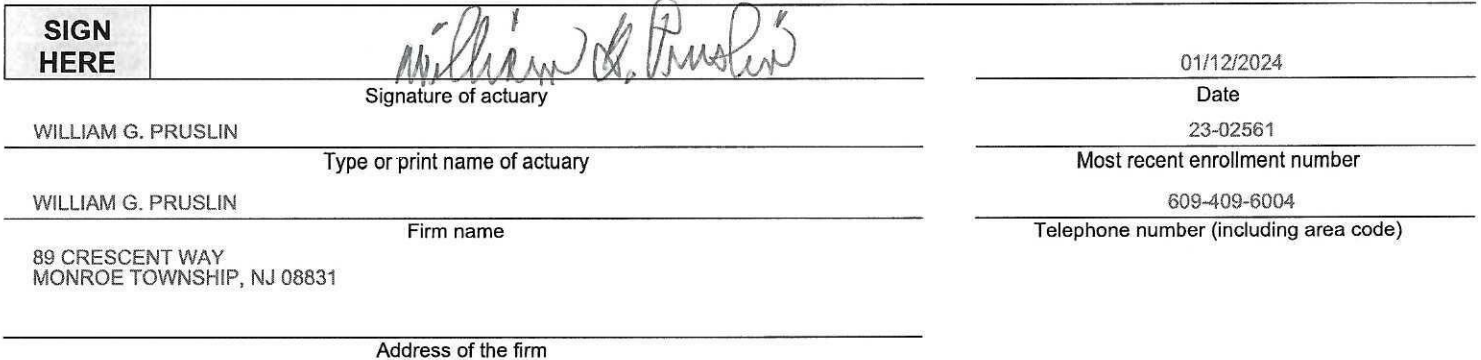 SIGN
HERE
William G. Pruslin
01/12/2024
Signature of actuary
Date
WILLIAM G. PRUSLIN
23-02561
Type or print name of actuary
Most recent enrollment number
WILLIAM G. PRUSLIN
609-409-6004
Firm name
Telephone number (including area code)
89 CRESCENT WAY
MONROE TOWNSHIP, NJ 08831
Address of the firm